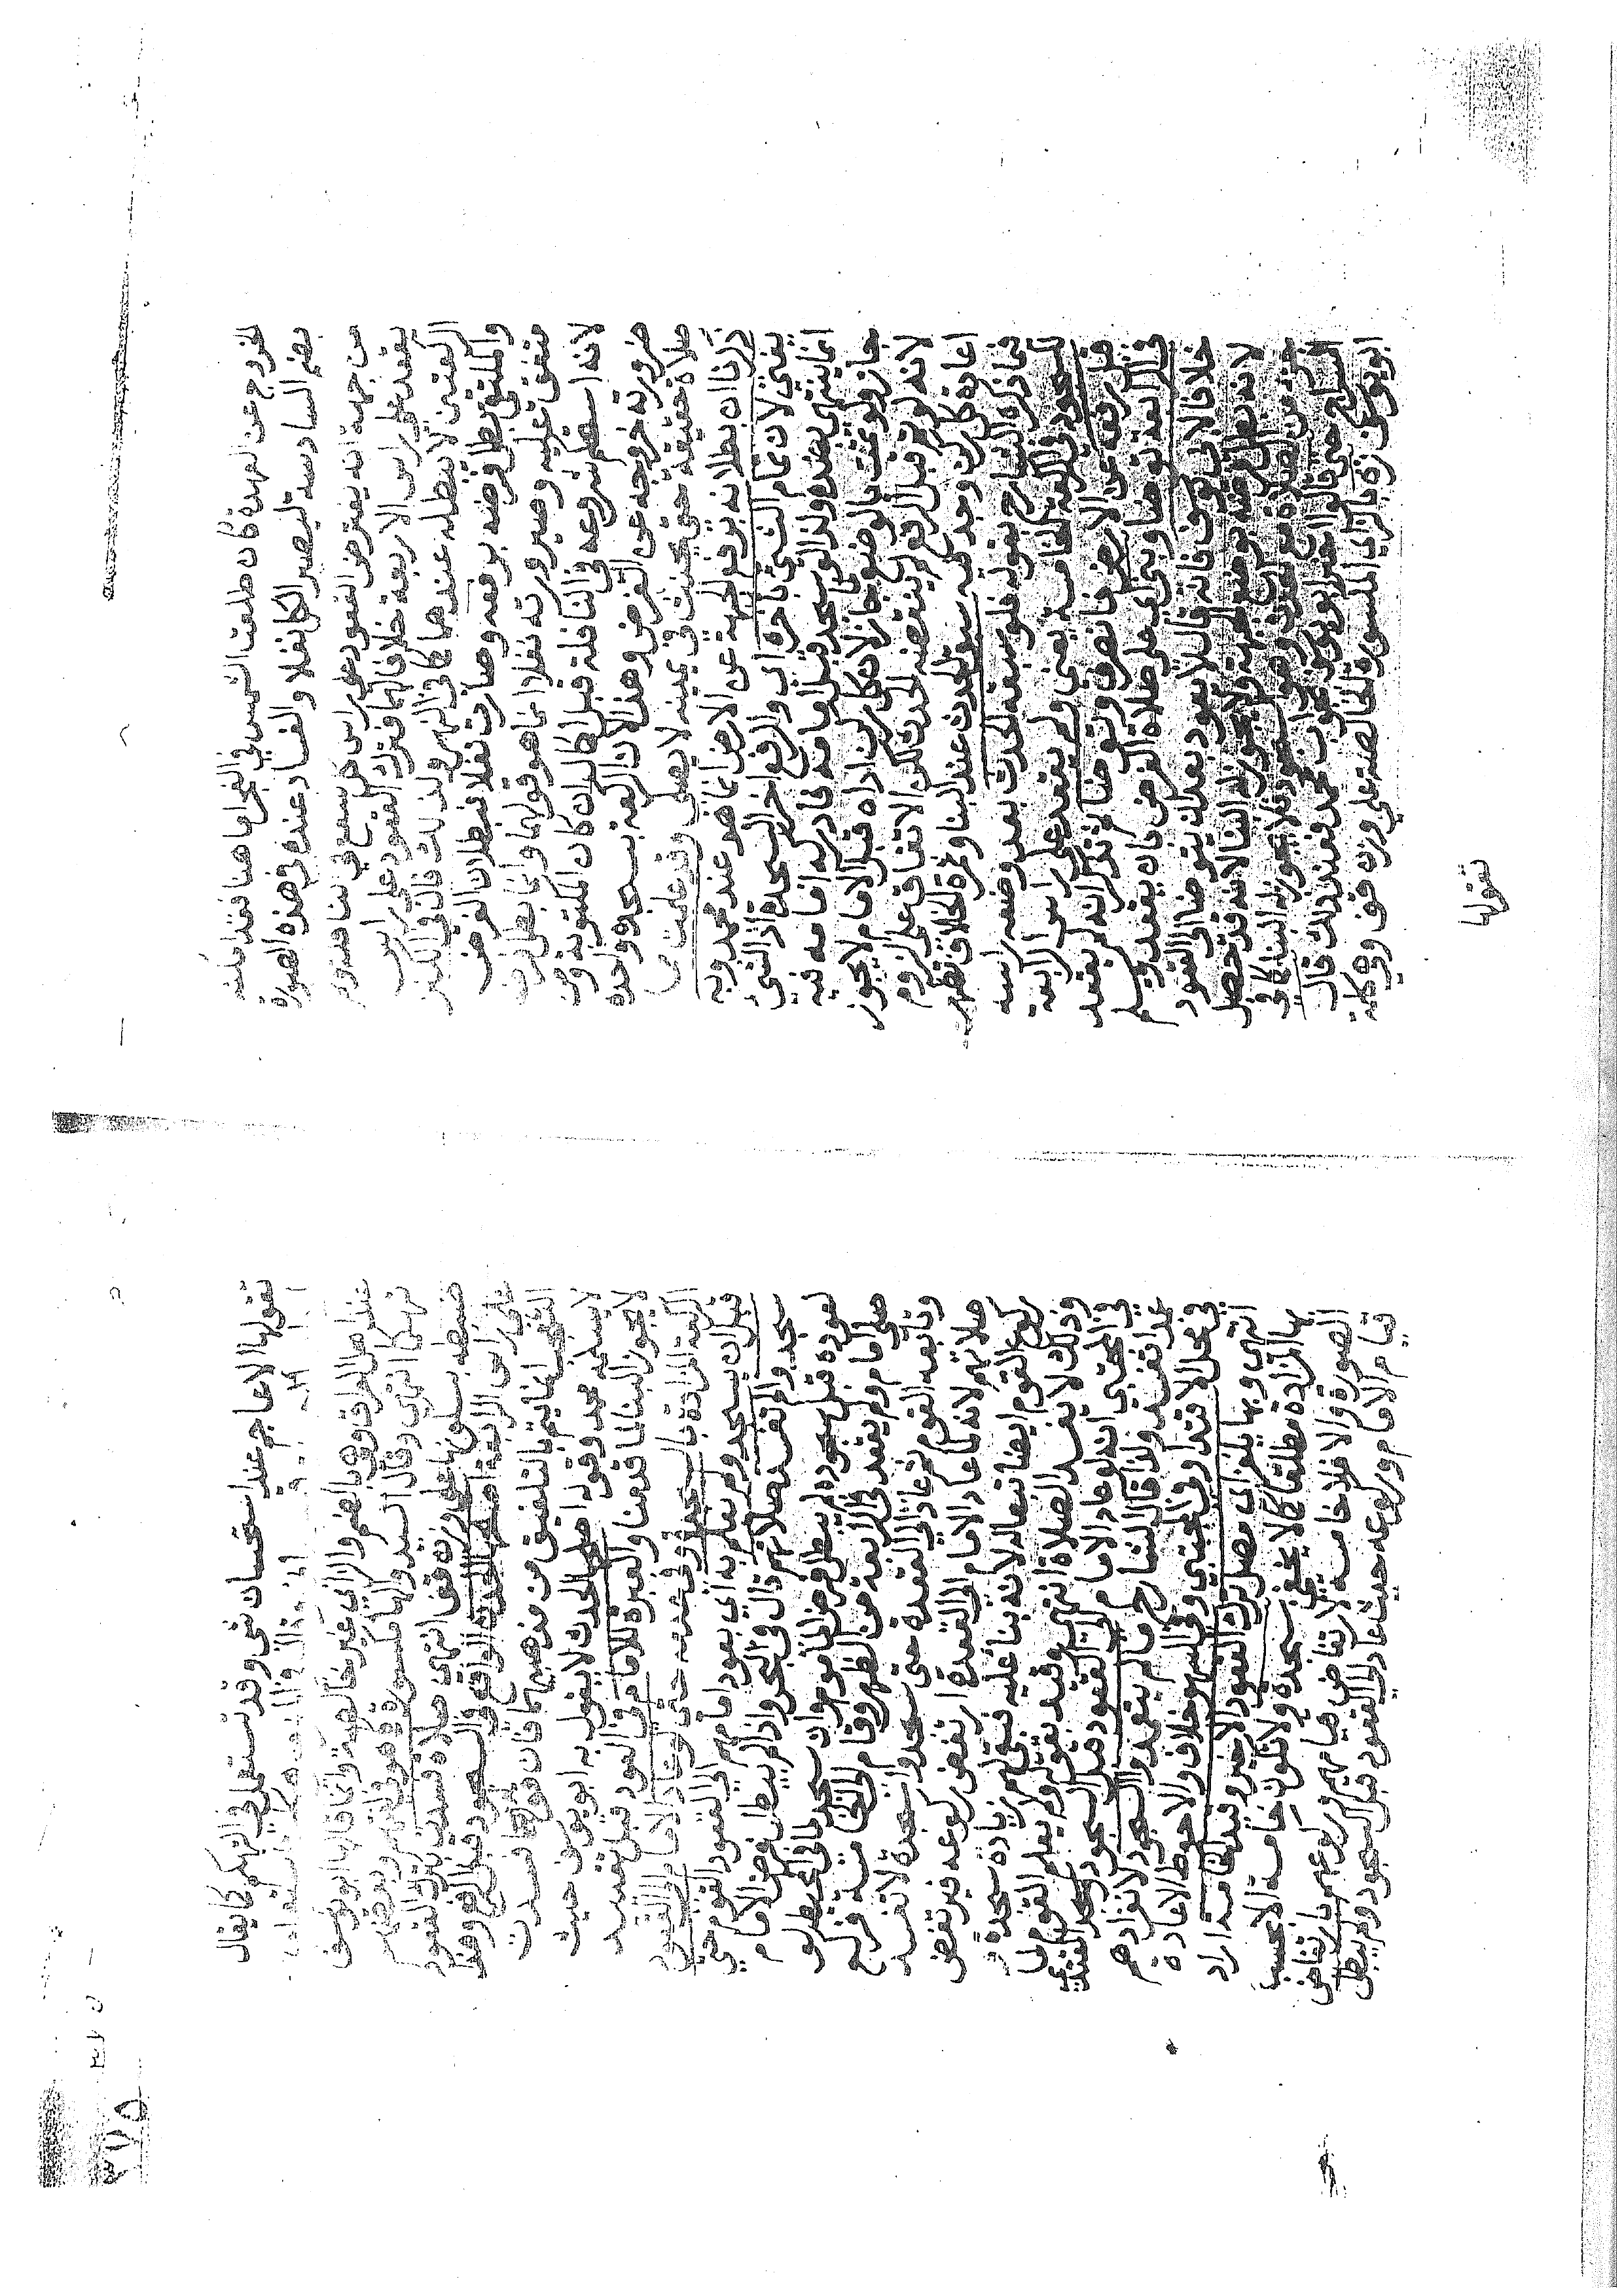 للخروج عن العهدة كان طلعت الشمس في الفجر اما هنا فقد يمكنه
بضم السادسة ليصير الكل نفلا والفساد عنده في هذه الصورة
من جهة انه يفترض القعود على راس كل شفع
يقعد على راس الاربعة خلافا لهما فترك القعود على راس
الركعتين لا يبطله عندهما كما في النهر ولذلك قال في الكنز
والملتقى بطل فرضه برفعه وصارت نفلا فبطلان الفرض
متفق عليه وصيرورته نفلا انما هو قولهما وانما بطل فرضه
لانه استحكم شروعه في النافلة قبل اكمال اركان المكتوبة ومن
ضرورته خروجه عن الفرض وهذا لان الركعة بسجدة واحدة
صلاة حقيقة حتى يحنث في يمينه لا يصلي وقد علمت مما
ذكرنا ان بطلانه برفع الجبهة عن الارض انما هو عند محمد وبه
يفتى لان تمام الشيء باخره اي والرفع اخر السجدة اذ الشيء
انما ينتهي بضده ولذا لو سجد قبل امامه فادركه امامه فيه
جاز ولو تمت بالوضع لما جاز لان كل ركن اداه قبل الامام لا يجوز
لانه لو تم قبل الرفع لم ينقضه الحدث لكن الاتفاق على لزوم
اعادة كل ركن وجد فيه سبق الحدث عند البنا وثمرة الخلاف تظهر
فيما ذكره الشارح بقوله فلو سبقه الحدث بعد وضعه راسه
للسجود في الركعة الخامسة يعني ولم يقعد على راس الرابعة
قبل رفعه عن الارض فانصرف وتوضا ثم تذكر انه لم يقعد
في الركعة توضا وبنى اي على صلاة الفرض بان يقعد ويسلم
خلافا لابي يوسف فانه قال لا يعود بعد ان يتوضا الى القعود
لانه بطل فرضه بوضع الجبهة ولا يجوز له البنا لانه قد حصل
جزء من الصلاة مع الحدث وهو السجود فلا يجوز له البنا كما في
السراج حتى قالوا اخبر ابو يوسف بجواب محمد فعند ذلك قال
ابو يوسف زه بالزاي المكسورة الخالصة على وزن قف وهي كلمة
تقولها
تقولها الاعاجم عند استحسان شي وقد تستعمل في التهكم كما يقال
هو بالضم والزاي غير خالصة وانما قالها ابو يوسف
تهكما انتهى وقال السيد والها مكسورة
ضبطه بسكون الها على وزن قف انتهى صلاة فسدت بترك القعود
على راس الرابعة اصلحها الحدث الواقع في السجود قبل الرفع وهذا
انما يتم بالتلفيق من مذهبهما فان قوله فسدت
لا يسلمه محمد وقوله اصلحها الحدث لا يقول به ابو يوسف حيث
لا يجوز البنا لما قدمنا والعبرة للامام في العود قبل تقييد
الركعة المزادة بالسجود وفي عدمه حتى لو عاد الامام الى القعود
قبل ان يسجد ولم يعلم به اي بعود امامهم الى القعود القوم حتى
سجدوا لم تفسد صلاتهم قال في البحر واذا لم يبطل فرض الامام
بعوده قبل سجوده لم يبطل فرض الماموم وان سجد لما في المحيط لو
صلى امام ولم يقعد في الرابعة من الظهر وقام الى الخامسة فركع
وتابعه القوم ثم عاد الى القعدة حتى سجدوا سجدة لا تفسد
صلاتهم لانه لما عاد الامام الى القعدة ارتفض ركوعه فيرتفض
ركوع القوم ايضا تبعا له لانه بنا عليه فبقي لهم زيادة سجدة
وذلك لا يفسد الصلاة انتهى وقيد بقوله ولم يعلم القوم لما
في المجتبى انه لو عاد الامام الى القعود قبل السجود وسجد المقتدي
عمدا تفسد ولذا قال الشارح ما لم يتعمدوا السجود لانفرادهم
في محل الاقتداء وفي المجتبى وفي السهو خلاف والاحوط الاعادة
انتهى وبها يلغز اي مصل ترك القعود الاخير وقيد الخامسة اراد
بها المزادة مطلقا كما لا يخفى بسجدة ولا تكون خامسة الا بحسب
الصورة والا فلا خامسة لارتفاض قيامهم وركوعهم بارتفاض
قيام الامام وركوعه حيث عاد الى القعود قبل السجود ولم يبطل